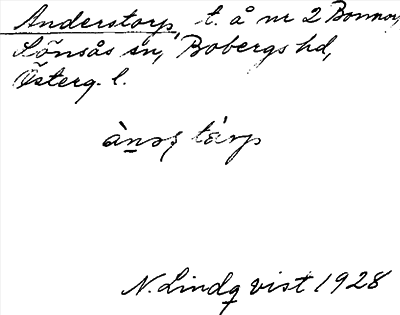 Anderstorp, t. å nr 2 Bonnor,
Lönsås sn, Bobergs hd,
Österg. l.
ànəş tárp
N. Lindqvist 1928